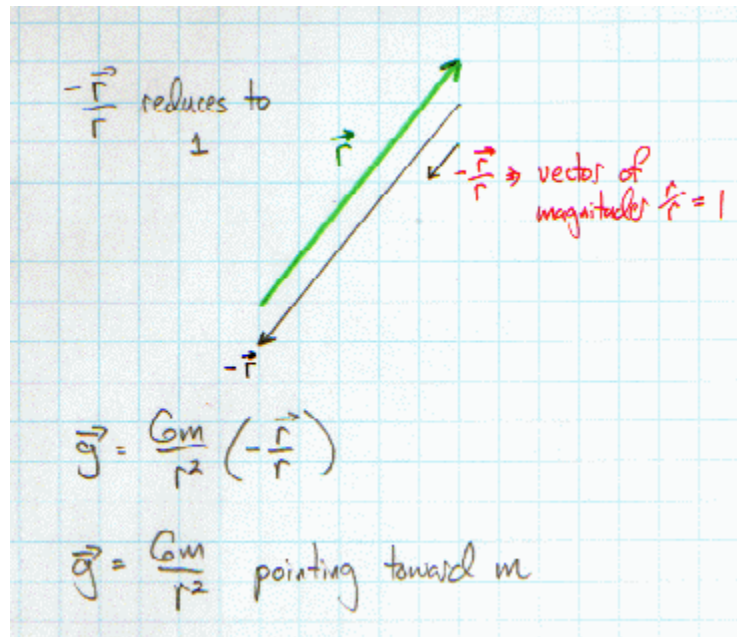 -r⃗/r reduces to
1
r⃗
-r⃗/r ⇒ vector of
magnitude r/r = 1
-r⃗
g⃗ = Gm/r² (-r⃗/r)
g⃗ = Gm/r² pointing toward m